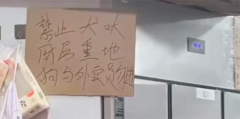 禁止大吠
厨房重地
狗与外卖员勿进